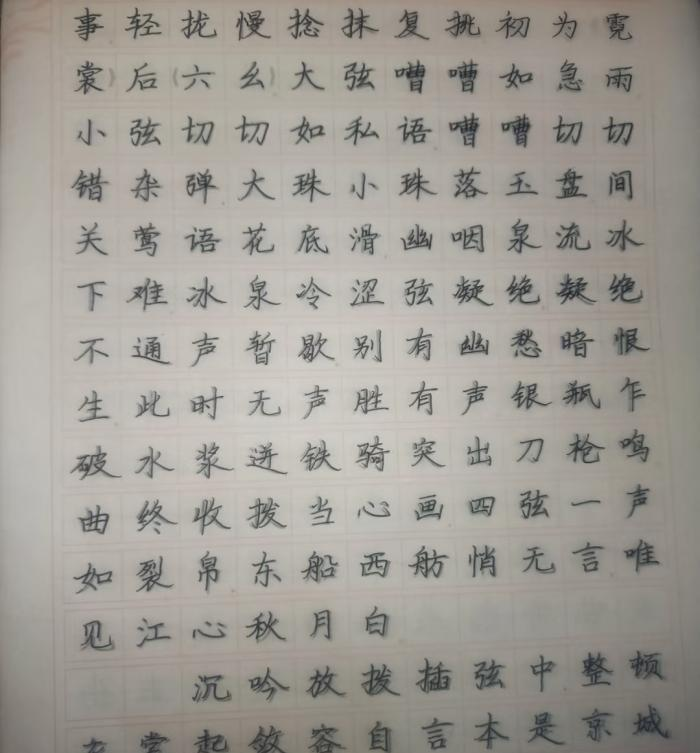 事轻拢慢捻抹复挑初为霓
裳（后（六幺）大弦嘈嘈如急雨
小弦切切如私语嘈嘈切切
错杂弹大珠小珠落玉盘间
关莺语花底滑幽咽泉流冰
下难冰泉冷涩弦凝绝凝绝
不通声暂歇别有幽愁暗恨
生此时无声胜有声银瓶乍
破水浆迸铁骑突出刀枪鸣
曲终收拨当心画四弦一声
如裂帛东船西舫悄无言唯
见江心秋月白
沉吟放拨插弦中整顿
衣裳起敛容自言本是京城